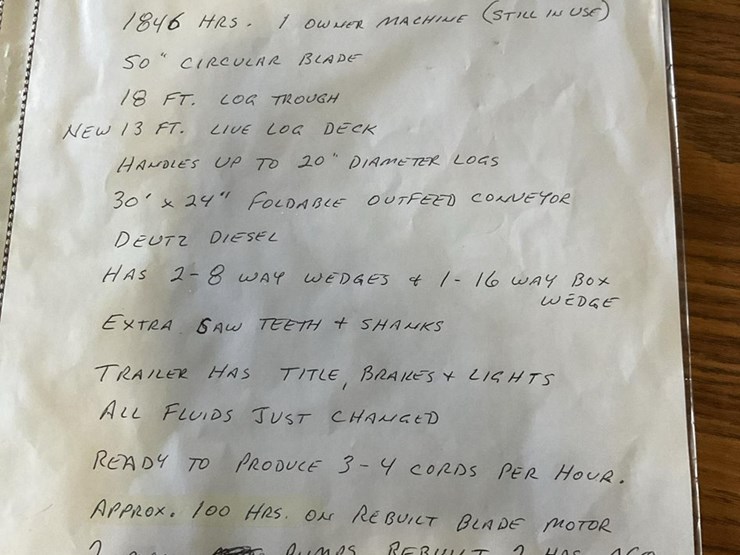 1846 HRS. 1 OWNER MACHINE (STILL IN USE)
50" CIRCULAR BLADE
18 FT. LOG TROUGH
NEW 13 FT. LIVE LOG DECK
HANDLES UP TO 20" DIAMETER LOGS
30' x 24" FOLDABLE OUTFEED CONVEYOR
DEUTZ DIESEL
HAS 2-8 WAY WEDGES & 1-16 WAY BOX
WEDGE
EXTRA SAW TEETH + SHANKS
TRAILER HAS TITLE, BRAKES + LIGHTS
ALL FLUIDS JUST CHANGED
READY TO PRODUCE 3-4 CORDS PER HOUR.
APPROX. 100 HRS. ON REBUILT BLADE MOTOR
PUMPS REBUILT